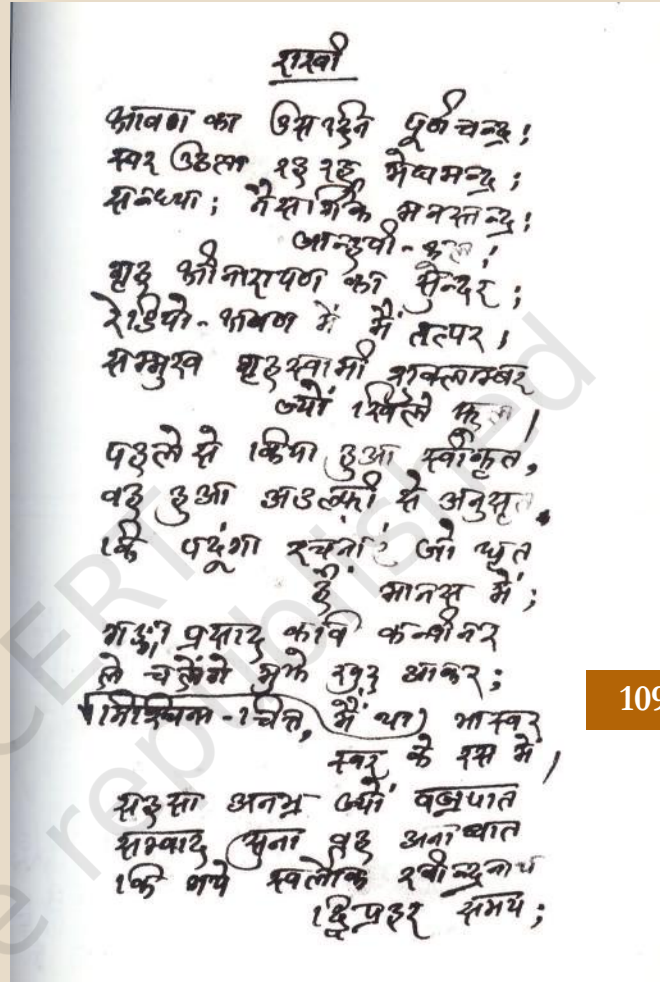 राखी
श्रावण का उस दिन पूर्ण चन्द्र;
स्वर उठता रह रह मेघमन्द्र;
सन्ध्या; नैसर्गिक मनस्तन्द्र;
जान्हवी-कूल;
गृह श्रीनारायण का सुन्दर;
रेडियो-श्रवण में मैं तत्पर,
सम्मुख गृहस्वामी शुक्लाम्बर
ज्यों खिले फूल।
पहले से किया हुआ स्वीकृत,
वह हुआ अडल्फी से अनुसृत,
कि पढूंगा रचनाएं जो धृत
हैं मानस में;
गङ्गाप्रसाद कवि कन्वीनर
ले चलेंगे मुझे खुद आकर;
निश्चिन्त-चित्त, मैं था भास्वर
स्वर के रस में।
सहसा अनभ्र ज्यों वज्रपात
सम्वाद सुना वह अनाख्यात
कि गये स्वर्लोक रवीन्द्रनाथ
द्विप्रहर समय;
109
NCERT
be republished